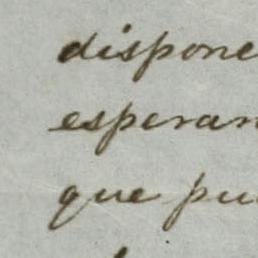 dispone
esperan
que pu